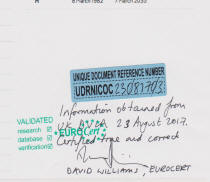 8 March 1982 7 March 2030
UNIQUE DOCUMENT REFERENCE NUMBER
UDRNICOC 23081703
Information obtained from
UK 23 August 2017.
VALIDATED
research
database
verification
EUROCert
Certified true and correct
DAVID WILLIAMS, EUROCERT